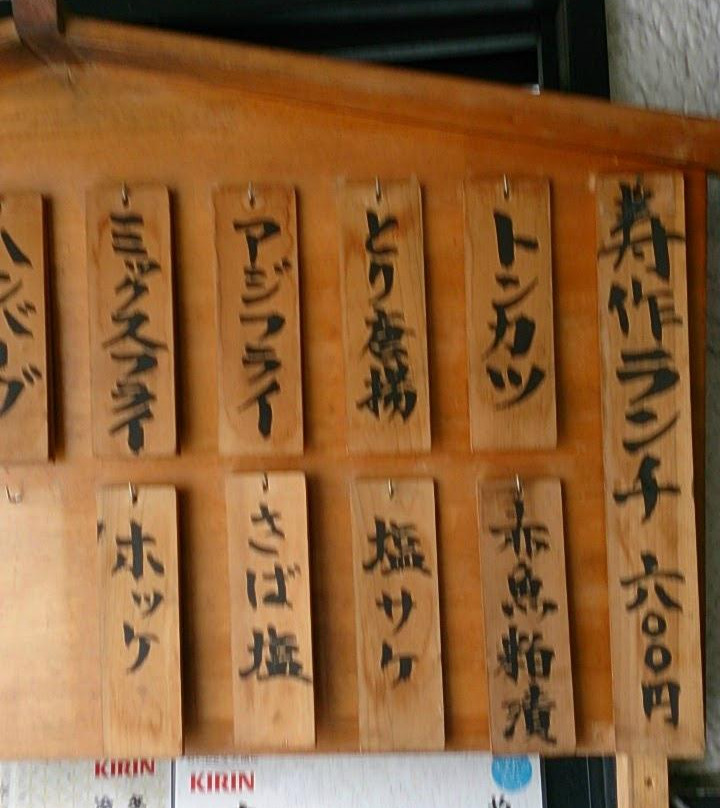 寿作ランチ 六〇〇円
トンカツ
とり唐揚
アジフライ
ミックスフライ
ハンバーグ
赤魚粕漬
塩サケ
さば塩
ホッケ
KIRIN
KIRIN